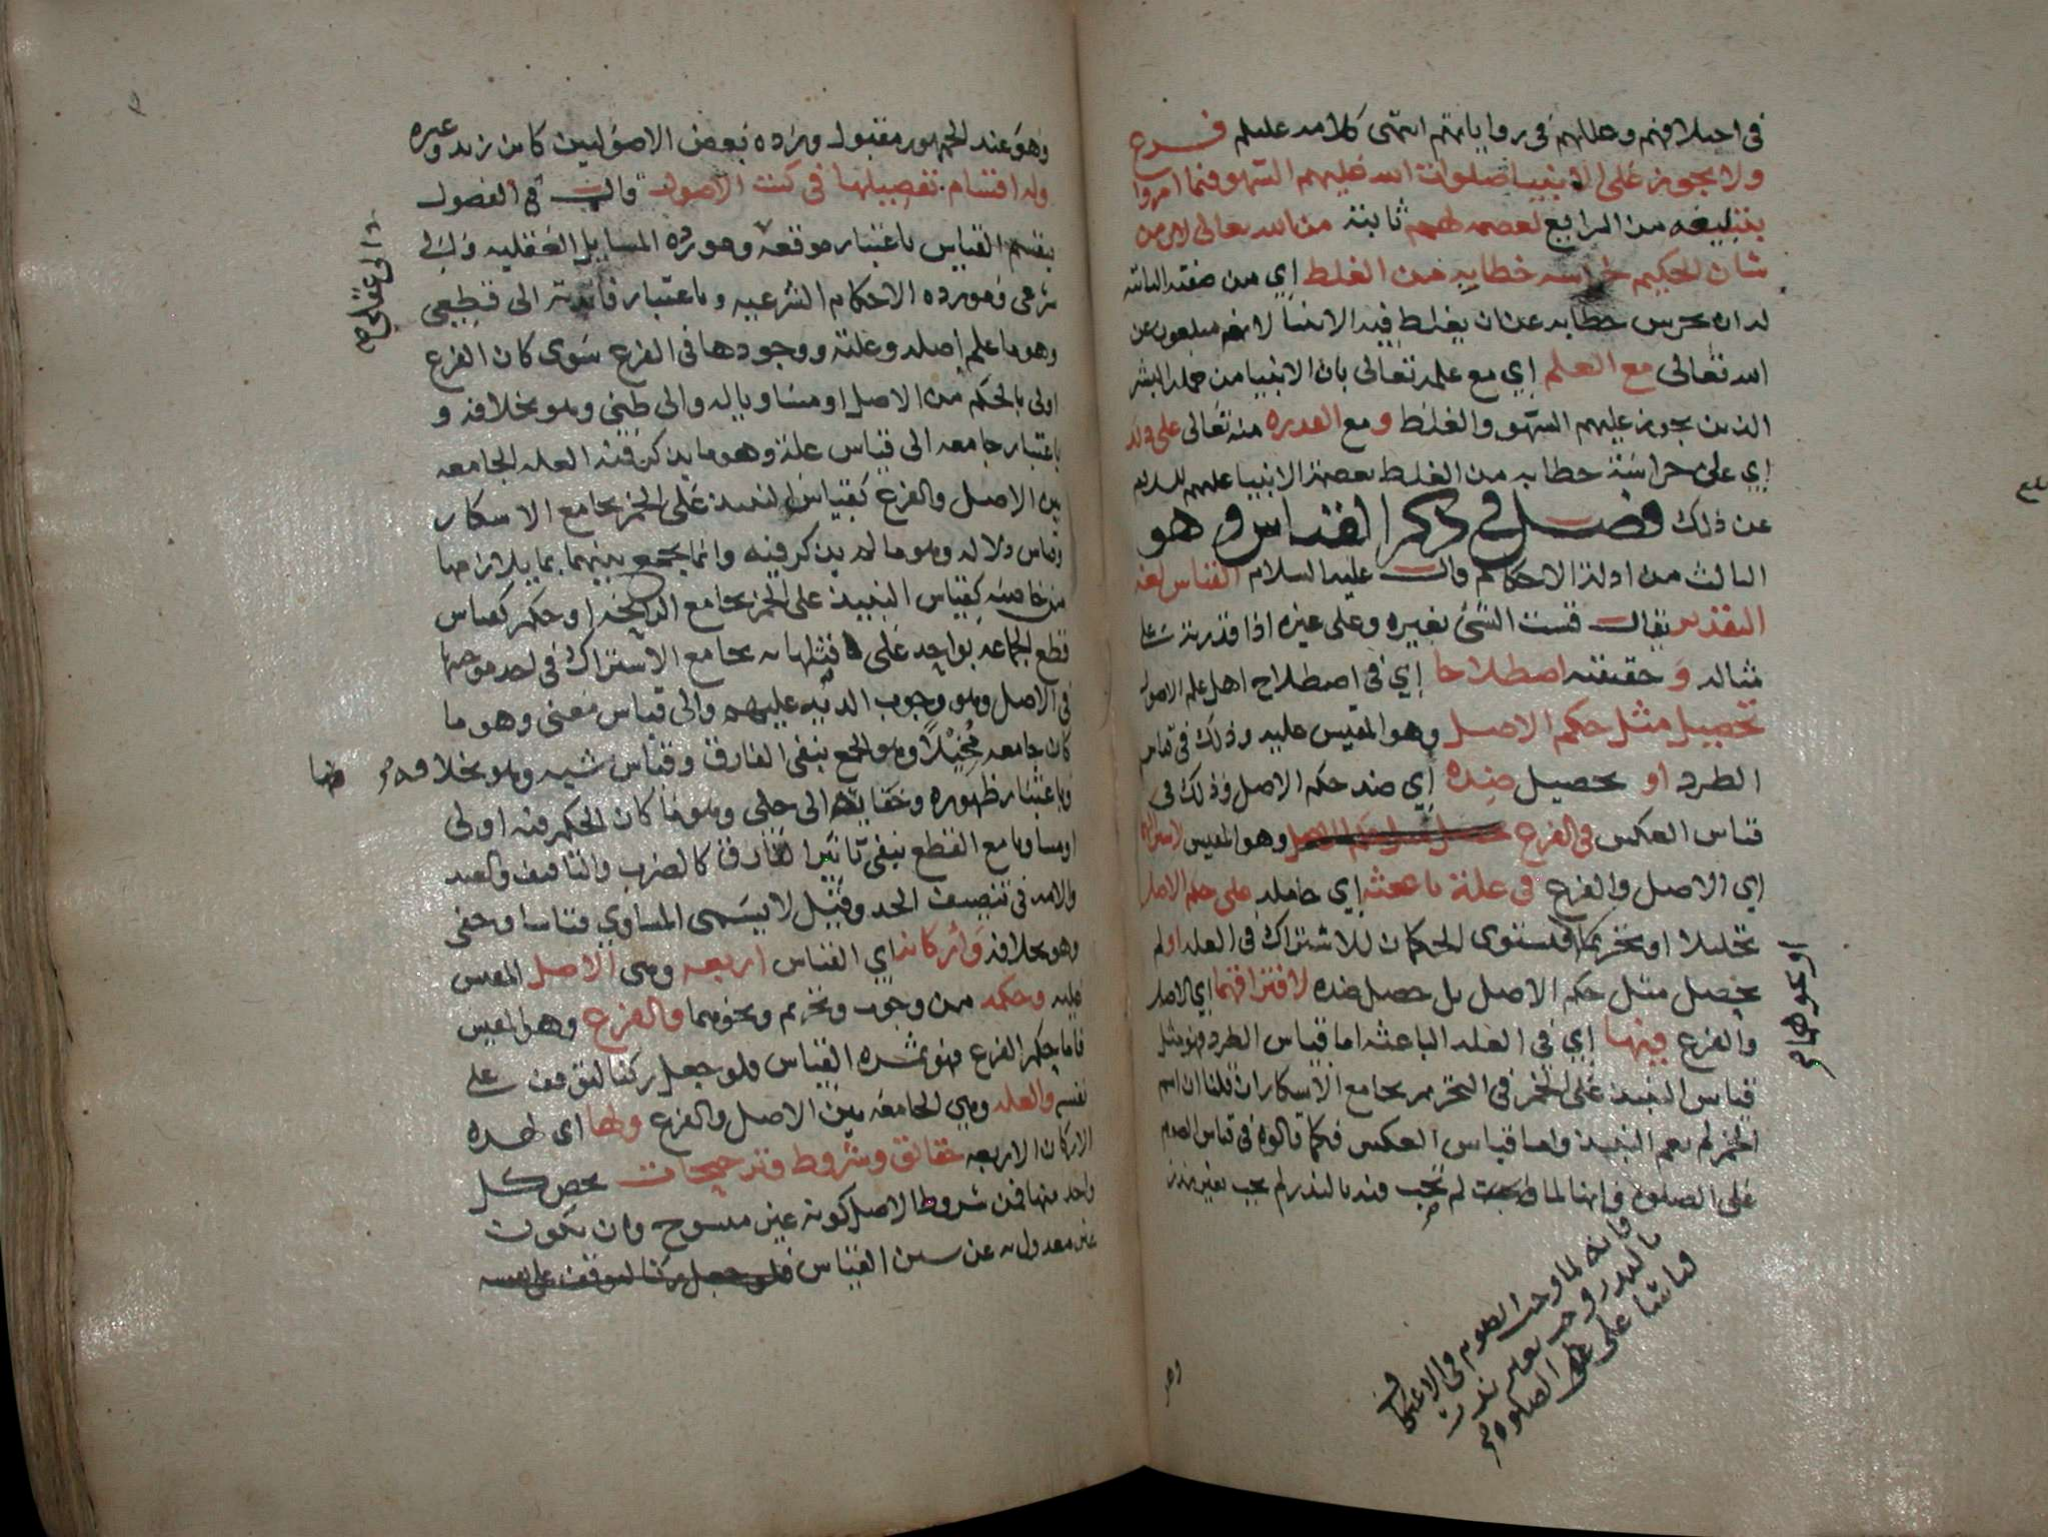 في اختلافهم وعللهم في رواياتهم انتهى كلامه عليلم فرع
ولا يجوز على الانبيا صلوات الله عليهم السهو فيما امروا
بتبليغه من الشرايع لعصمه لهم ثابتة من الله تعالى لان من
شان الحكيم حراسه خطابه من الغلط اي من صفته الثابته
له ان يحرس خطابه عن ان يغلط فيه الانبيا لانهم مبلغون عن
الله تعالى مع العلم اي مع علمه تعالى بان الانبيا من جمله البشر
الذين يجوز عليهم السهو والغلط ومع القدره منه تعالى على ذلك
اي على حراسة خطابه من الغلط بعصمة الانبيا عليهم السلام
عن ذلك فصل في ذكر القياس وهو
الثالث من ادلة الاحكام قال عليه السلام القياس لغة
التقدير يقال قست الشئ بغيره وعلى غيره اذا قدرته على
مثاله وحقيقته اصطلاحا اي في اصطلاح اهل علم الاصول
تحصيل مثل حكم الاصل وهو المقيس عليه وذلك في قياس
الطرد او تحصيل ضده اي ضد حكم الاصل وذلك في
قياس العكس في الفرع وهو المقيس لاشتراكهما
اي الاصل والفرع في علة باعثة اي حامله على حكم الاصل
تحليلا او تحريما فيستوي الحكمان للاشتراك في العله او لم
يحصل مثل حكم الاصل بل حصل ضده لافتراقهما اي الاصل
والفرع فيها اي في العله الباعثه اما قياس الطرد فهو مثل
قياس النبيذ على الخمر في التحريم بجامع الاسكار ان قلنا ان اسم
الخمر لم يعم النبيذ واما قياس العكس فكما قالوه في قياس الصوم
على الصلوة فانها لما لم تجب فيه بالنذر لم تجب بغير نذر
او نحوهما م
فانه لما وجب الصوم في الاعتكاف
بالنذر وجب بغير نذر
قياسا على الصلوة م
وهو
وهو عند الجمهور مقبول ورده بعض الاصوليين كابن زيد وغيره
وله اقسام تفصيلها في كتب الاصول قال في الفصول
ينقسم القياس باعتبار موقعه وهو رده المسايل العقليه والى
شرعي ومورده الاحكام الشرعيه وباعتبار فايدته الى قطعي
وهو ما علم اصله وعلته ووجودها في الفرع سوى كان الفرع
اولى بالحكم من الاصل او مساويا له والى ظني وهو بخلافه و
باعتبار جامعه الى قياس علة وهو ما يذكر فيه العله الجامعه
بين الاصل والفرع كقياس النبيذ على الخمر بجامع الاسكار
وقياس دلاله وهو ما لم يذكر فيه وانما يجمع بينهما بما يلازمها
من خاصته كقياس النبيذ على الخمر بجامع الرايحه او حكم كقياس
قطع الجماعه بواحد على قتلها به بجامع الاشتراك في احد موجبها
في الاصل وهو وجوب الديه عليهم والى قياس معنى وهو ما
كان جامعه مُخيلًا وهو الجمع بنفي الفارق وقياس شبه وهو بخلافه م
وباعتبار ظهوره وخفايه الى جلي وهو ما كان الحكم فيه اولى
او مساويا مع القطع بنفي تاثير الفارق كالضرب والتافيف والعبد
والامه في تنصيف الحد وقيل لا يسمى المساوي قياسا وخفي
وهو بخلافه واركانه اي القياس اربعه وهي الاصل المقيس
عليه وحكمه من وجوب وتحريم ونحوهما والفرع وهو المقيس
فاما حكم الفرع فهو ثمرة القياس فلو جعل ركنا لتوقف على
نفسه والعله وهي الجامعه بين الاصل والفرع ولها اي لهذه
الاركان الاربعه حقائق وشروط وترجيحات يخص كل
واحد منها فمن شروط الاصل كونه غير منسوخ وان يكون
غير معدول به عن سنن القياس فلو جعل ركنا لتوقف على نفسه
الى عقلي م